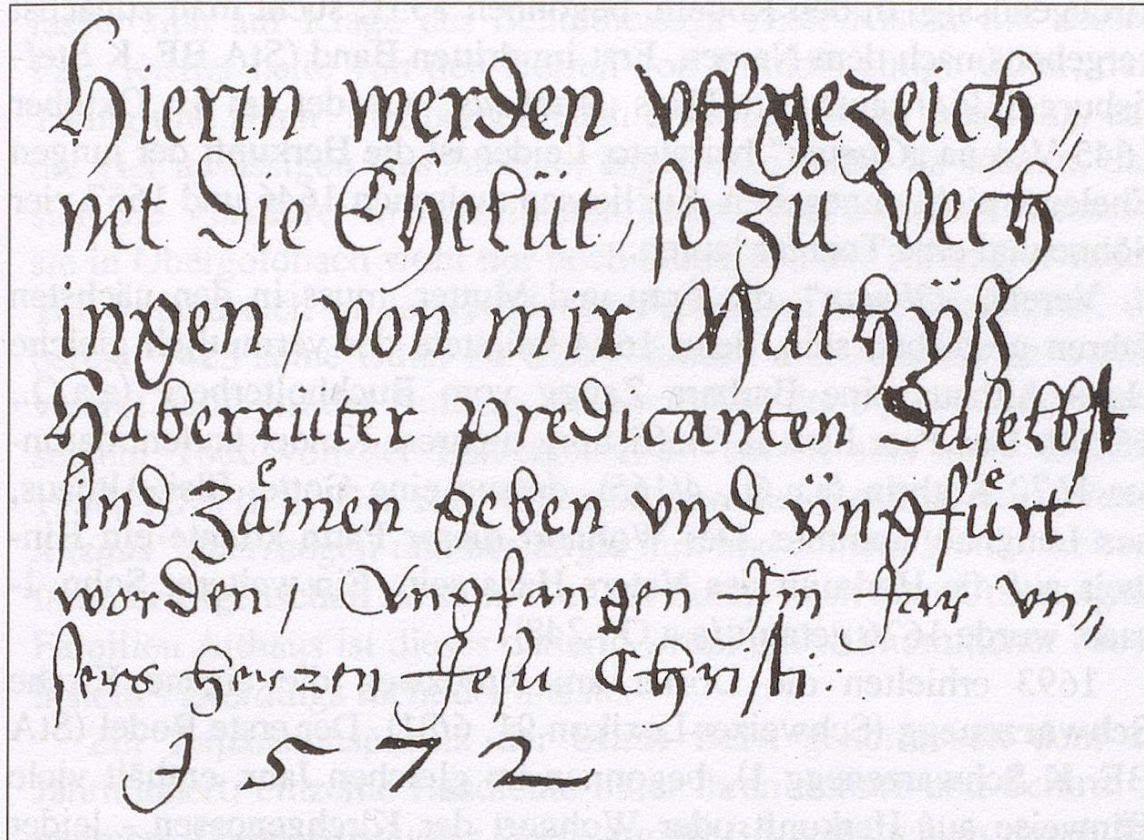 Hierin werden vffgezeich /
net die Ehelüt / so zů Vech
ingen / von mir Mathyß
Haberrüter predicanten Daselbst
sind zåmen geben vnd yingfůrt
worden / Angfangen Im
hers herzen Jesu Christi :
1572